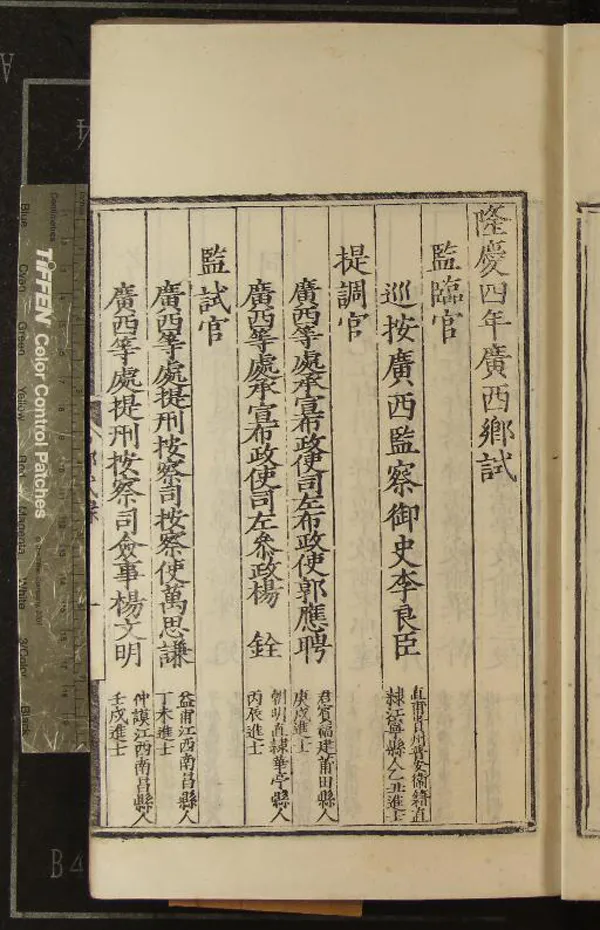 隆慶四年廣西鄉試
監臨官
巡按廣西監察御史李良臣
直甫貴州普安衛籍直
隸江寧縣人乙丑進士
提調官
廣西等處承宣布政使司左布政使郭應聘
君賓福建莆田縣人
庚戌進士
廣西等處承宣布政使司左叅政楊銓
朝明直隸華亭縣人
丙辰進士
監試官
廣西等處提刑按察司按察使萬思謙
益甫江西南昌縣人
丁未進士
廣西等處提刑按察司僉事楊文明
仲謨江西南昌縣人
壬戌進士
TIFFEN Color Control Patches
Blue
Cyan
Green
Yellow
Red
Magenta
White
3/Color
Black
Centimetres
A
B4